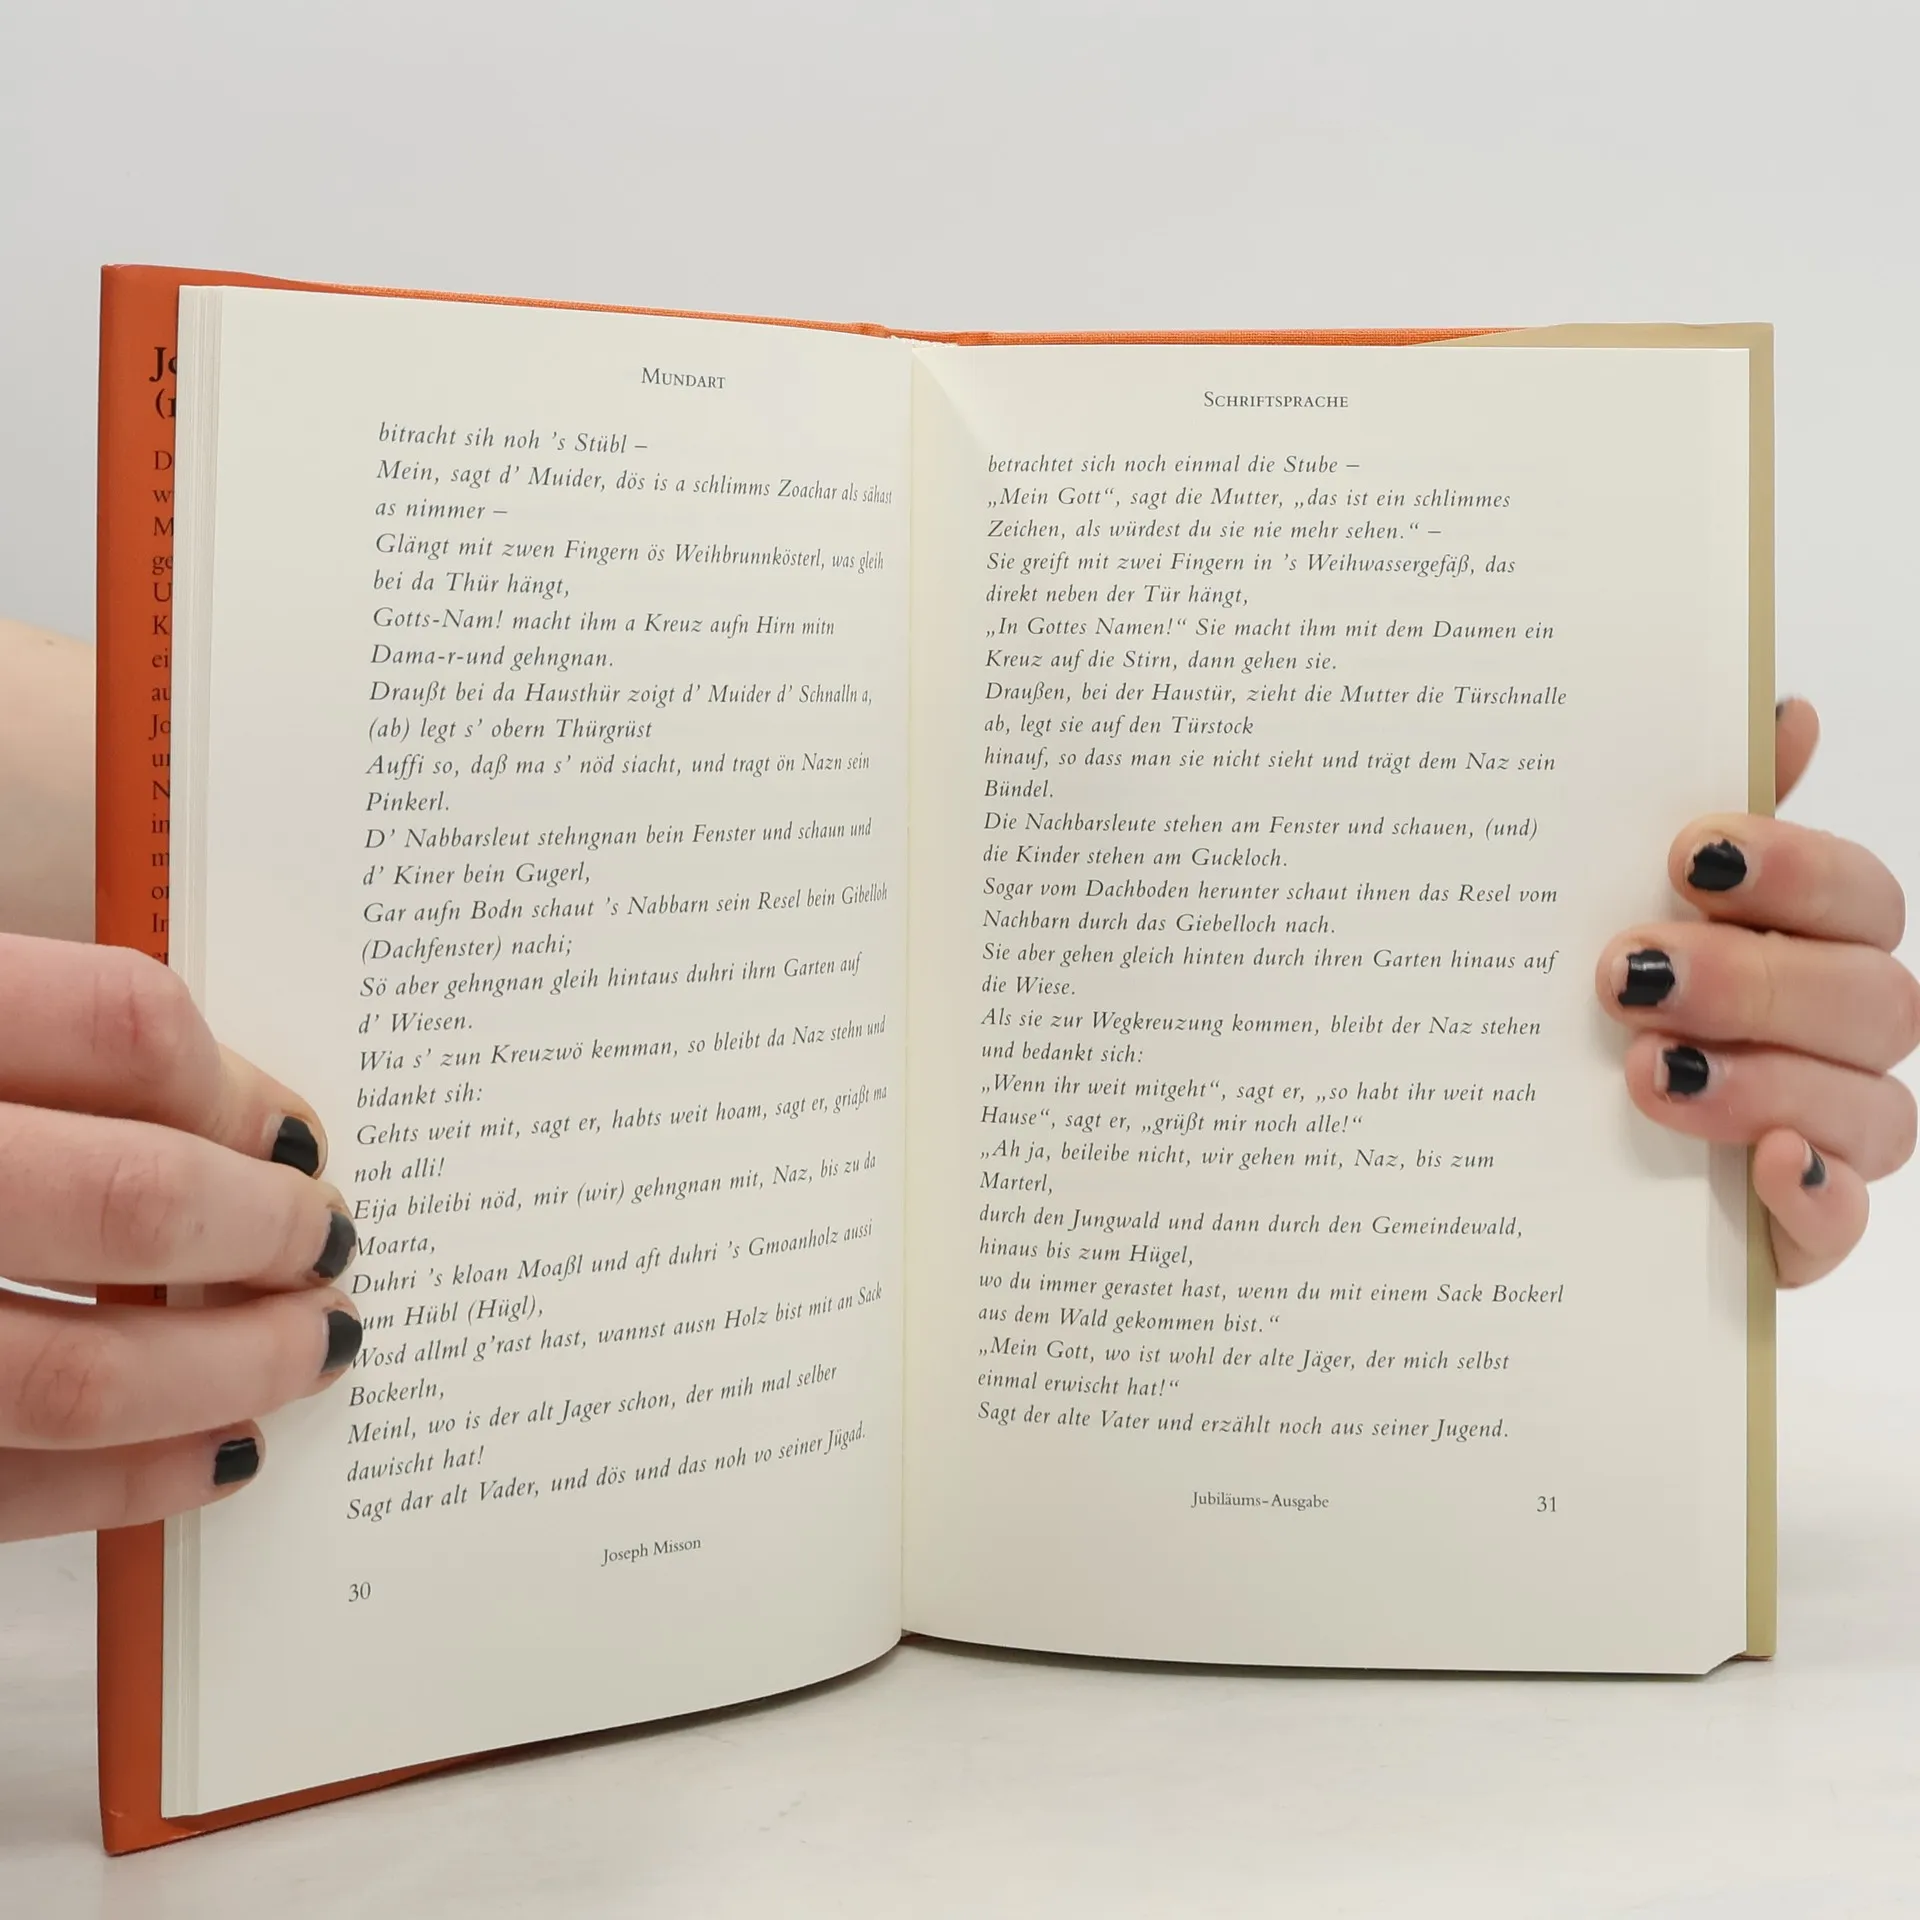 Jo
(1
D
w
M
ge
U
K
ei
au
Jo
un
N
in
m
or
In
er
MUNDART
bitracht sih noh ’s Stübl –
Mein, sagt d’ Muider, dös is a schlimms Zoachar als sähast
as nimmer –
Glängt mit zwen Fingern ös Weihbrunnkösterl, was gleih
bei da Thür hängt,
Gotts-Nam! macht ihm a Kreuz aufn Hirn mitn
Dama-r-und gehngnan.
Draußt bei da Hausthür zoigt d’ Muider d’ Schnalln a,
(ab) legt s’ obern Thürgrüst
Auffi so, daß ma s’ nöd siacht, und tragt ön Nazn sein
Pinkerl.
D’ Nabbarsleut stehngnan bein Fenster und schaun und
d’ Kiner bein Gugerl,
Gar aufn Bodn schaut ’s Nabbarn sein Resel bein Gibelloh
(Dachfenster) nachi;
Sö aber gehngnan gleih hintaus duhri ihrn Garten auf
d’ Wiesen.
Wia s’ zun Kreuzwö kemman, so bleibt da Naz stehn und
bidankt sih:
Gehts weit mit, sagt er, habts weit hoam, sagt er, griaßt ma
noh alli!
Eija bileibi nöd, mir (wir) gehngnan mit, Naz, bis zu da
Moarta,
Duhri ’s kloan Moaßl und aft duhri ’s Gmoanholz aussi
um Hübl (Hügl),
Wosd allml g’rast hast, wannst ausn Holz bist mit an Sack
Bockerln,
Meinl, wo is der alt Jager schon, der mih mal selber
dawischt hat!
Sagt dar alt Vader, und dös und das noh vo seiner Jügad.
Joseph Misson
30
SCHRIFTSPRACHE
betrachtet sich noch einmal die Stube –
„Mein Gott“, sagt die Mutter, „das ist ein schlimmes
Zeichen, als würdest du sie nie mehr sehen.“ –
Sie greift mit zwei Fingern in ’s Weihwassergefäß, das
direkt neben der Tür hängt,
„In Gottes Namen!“ Sie macht ihm mit dem Daumen ein
Kreuz auf die Stirn, dann gehen sie.
Draußen, bei der Haustür, zieht die Mutter die Türschnalle
ab, legt sie auf den Türstock
hinauf, so dass man sie nicht sieht und trägt dem Naz sein
Bündel.
Die Nachbarsleute stehen am Fenster und schauen, (und)
die Kinder stehen am Guckloch.
Sogar vom Dachboden herunter schaut ihnen das Resel vom
Nachbarn durch das Giebelloch nach.
Sie aber gehen gleich hinten durch ihren Garten hinaus auf
die Wiese.
Als sie zur Wegkreuzung kommen, bleibt der Naz stehen
und bedankt sich:
„Wenn ihr weit mitgeht“, sagt er, „so habt ihr weit nach
Hause“, sagt er, „grüßt mir noch alle!“
„Ah ja, beileibe nicht, wir gehen mit, Naz, bis zum
Marterl,
durch den Jungwald und dann durch den Gemeindewald,
hinaus bis zum Hügel,
wo du immer gerastet hast, wenn du mit einem Sack Bockerl
aus dem Wald gekommen bist.“
„Mein Gott, wo ist wohl der alte Jäger, der mich selbst
einmal erwischt hat!“
Sagt der alte Vater und erzählt noch aus seiner Jugend.
Jubiläums-Ausgabe
31